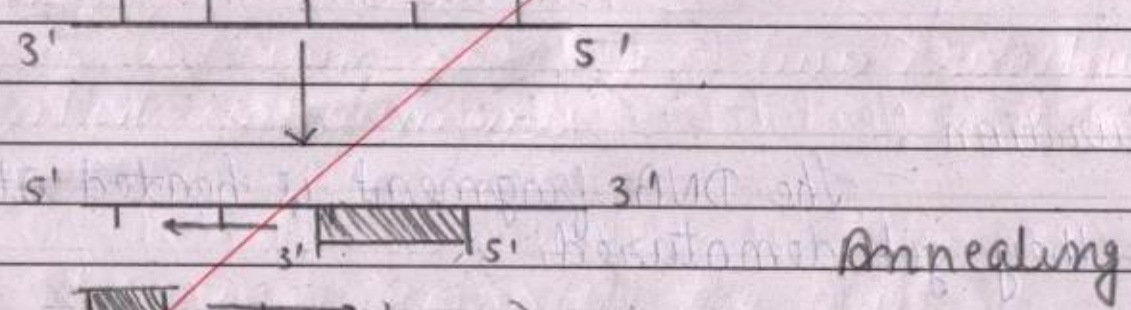 3' 5'
5' 3'
3' 5'
Annealing